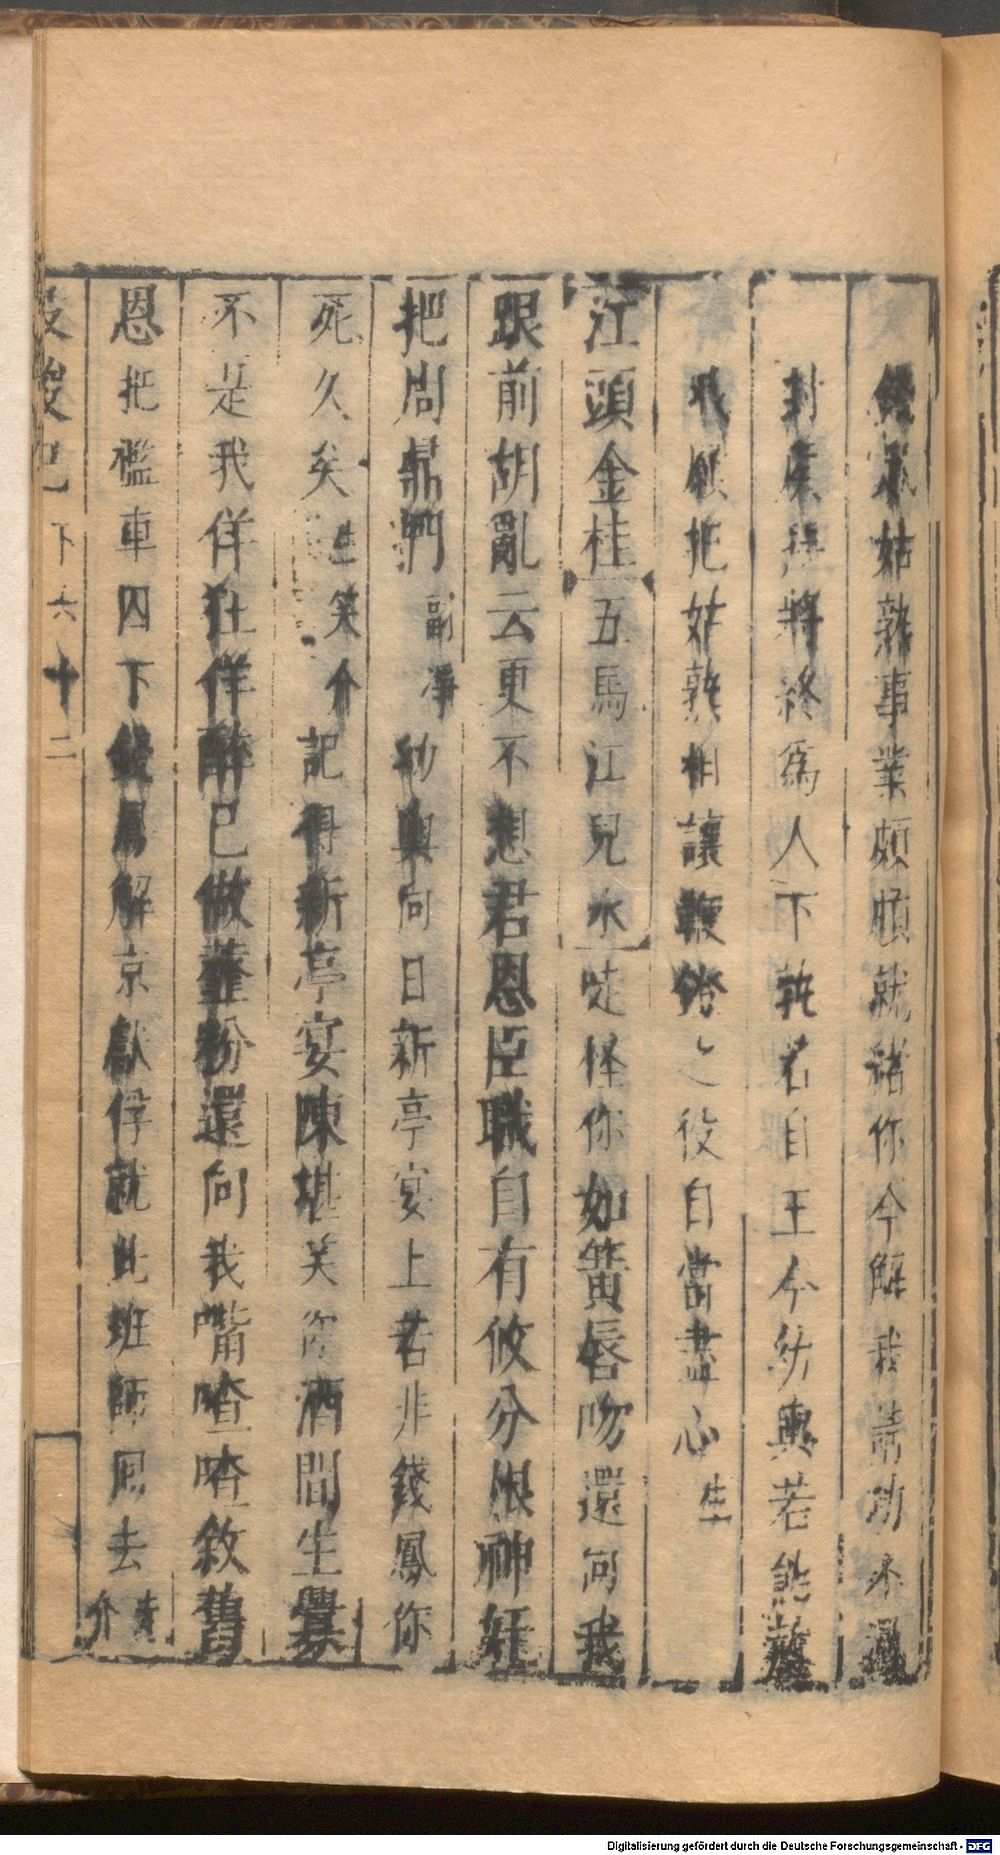 錢鳳姑孰事業頗頗就緒你今解我請功不過
封侯拜將終爲人下孰若自王今幼輿若能救
我願把姑孰相讓鞭鐙之役自當盡心生
江頭金桂五馬江兒水哫怪你如簧唇吻還向我
跟前胡亂云更不想君恩臣職自有攸分恨神奸
把周鼎問副淨幼輿向日新亭宴上若非錢鳳你
死久矣生笑介記得新亭宴陳堪笑你酒間生釁
不是我佯狂佯醉已做虀粉還向我嘴喳喳敘舊
恩把檻車囚下錢鳳解京獻俘就此班師回去眾介
投梭記下六十二
Digitalisierung gefördert durch die Deutsche Forschungsgemeinschaft - DFG